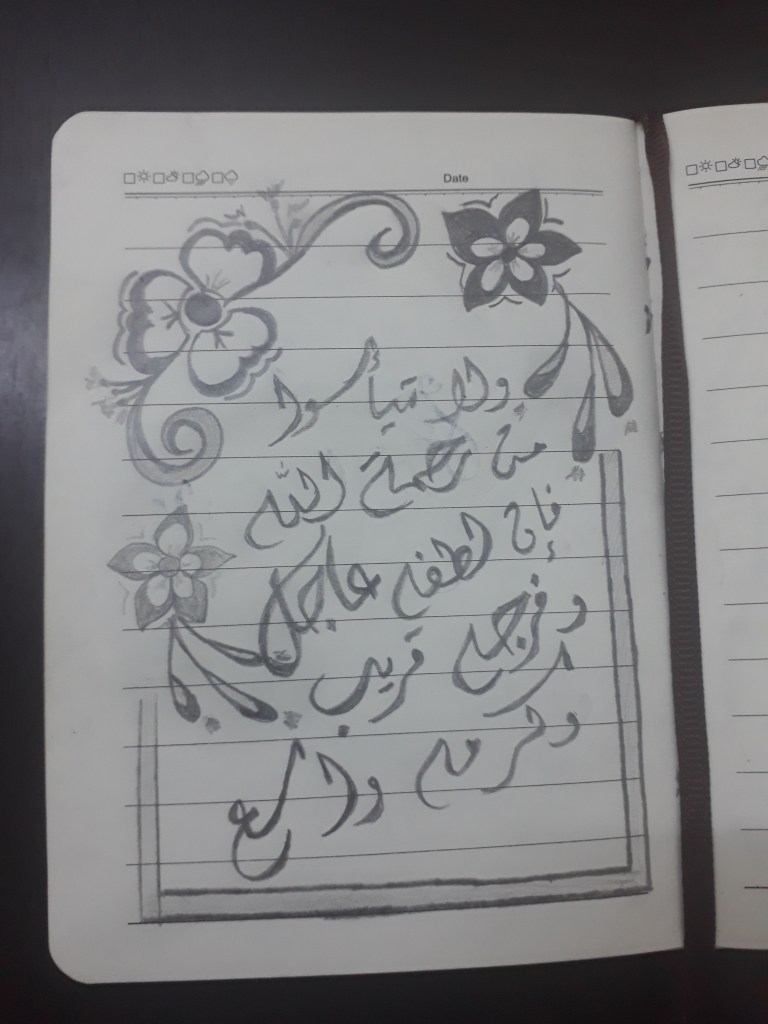 Date
ولا تيأسوا
من رحمة الله
فإن لطفه عاجل
وفرجه قريب
وكرمه واسع